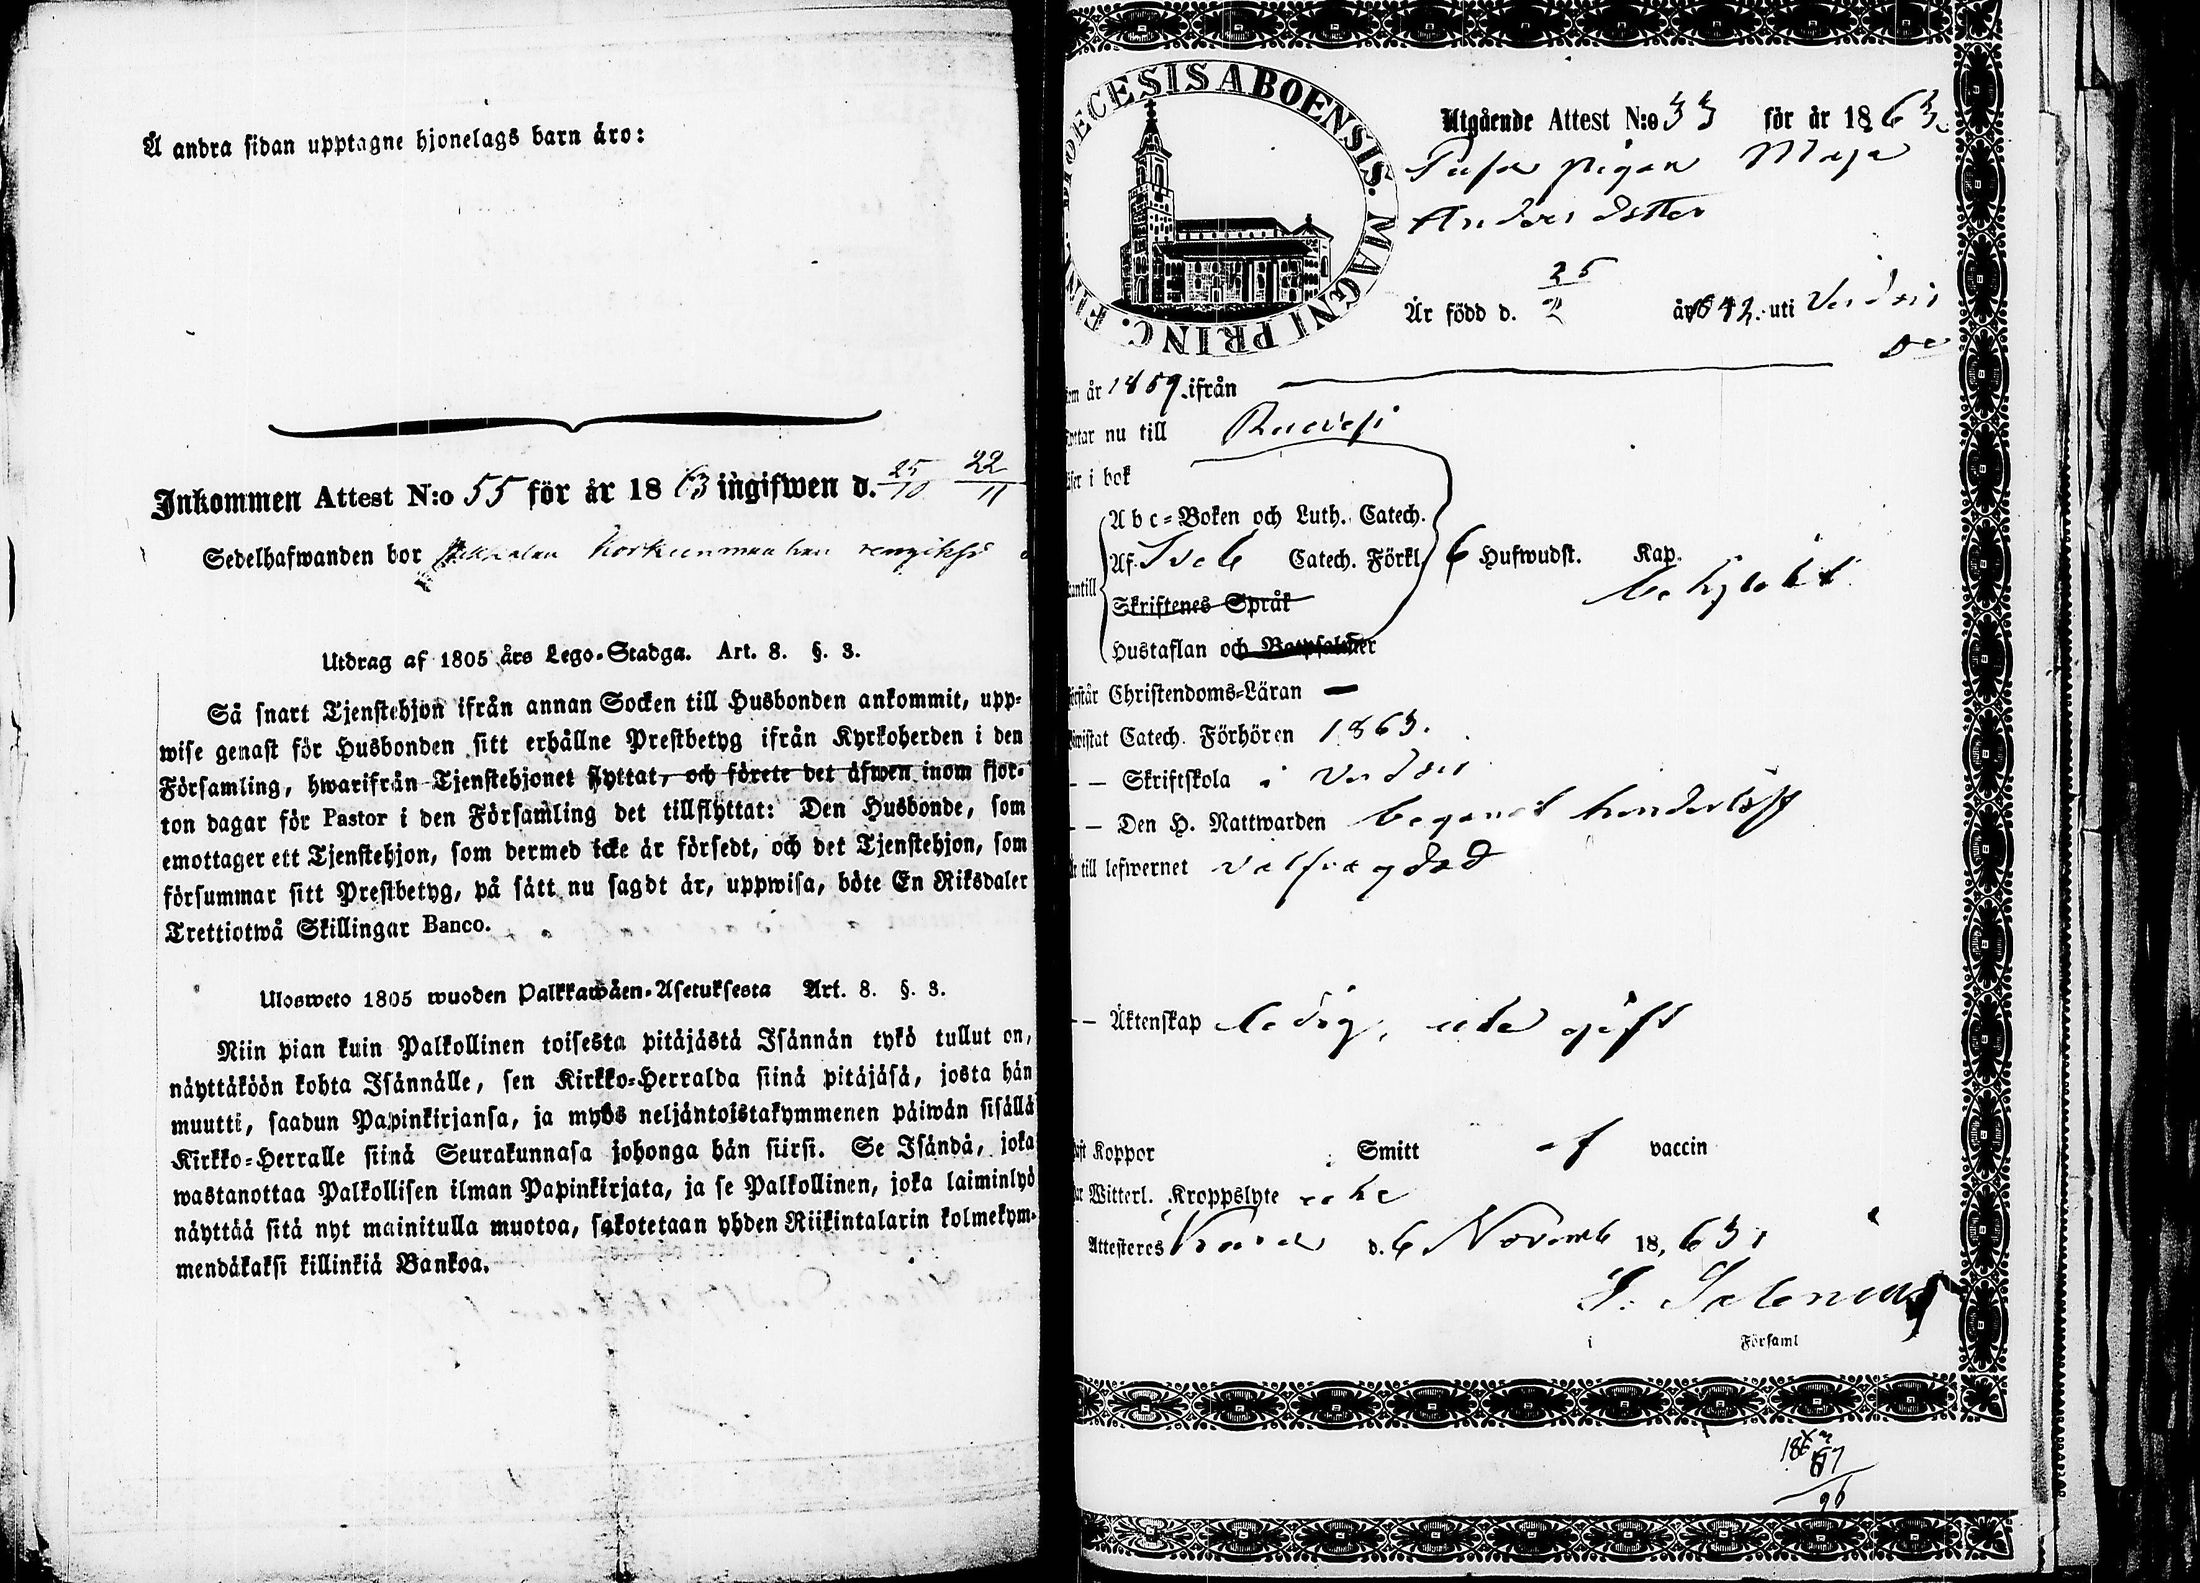 Å andra sidan upptagne hjonelags barn äro:
Inkommen Attest N:o 55 för år 1863 ingifwen d. 25/10 22/11
Sedelhafwanden bor
Utdrag af 1805 års Lego-Stadga. Art. 8. §. 3.
Så snart Tjenstehjon ifrån annan Socken till Husbonden ankommit, upp-
wise genast för Husbonden sitt erhållne Prestbetyg ifrån Kyrkoherden i den
Församling, hwarifrån Tjenstehjonet flyttat, och förete det äfwen inom fjor-
ton dagar för Pastor i den Församling det tillflyttat: Den Husbonde, som
emottager ett Tjenstehjon, som dermed icke är försedt, och det Tjenstehjon, som
försummar sitt Prestbetyg, på sätt nu sagdt är, uppwisa, böte En Riksdaler
Trettiotwå Skillingar Banco.
Ulosweto 1805 wuoden Palkkawäen-Asetuksesta Art. 8. §. 3.
Niin pian kuin Palkollinen toisesta pitäjästä Isännän tykö tullut on,
näyttäköön kohta Isännälle, sen Kirkko-Herralda siinä pitäjäsä, josta hän
muutti, saadun Papinkirjansa, ja myös neljäntoistakymmenen päiwän sisällä
Kirkko-Herralle siinä Seurakunnasa johonga hän siirsi. Se Isändä, joka
wastanottaa Palkollisen ilman Papinkirjata, ja se Palkollinen, joka laiminlyö
näyttää sitä nyt mainitulla muotoa, sakotetaan yhden Riikintalarin kolmekym-
mendäkaksi killinkiä Bankoa.
DIOECESIS ABOENSIS. MAGNI PRINC. FINL.
Utgående Attest N:o 33 för år 1863.
pigan Maja
Andersdotter
Är född d. 25/2 år 1842. uti
år 1859. ifrån
nu till Ruovesi
i bok
Abc-Boken och Luth. Catech.
Af Sveb Catech. Förkl. 6 Hufwudst. Kap.
Skriftenes Språk
behjelpl.
Hustaflan och Botpsalmer
Christendoms-Läran —
Catech. Förhören 1863.
– – Skriftskola i
– – Den H. Nattwarden begånat hinderlöst
till lefwernet välfrägdad
– – Äktenskap ledig, icke gift
Koppor Smitt af vaccin
Witterl. Kroppslyte icke
Attesteres d. 6 Novemb 1863
i Församl